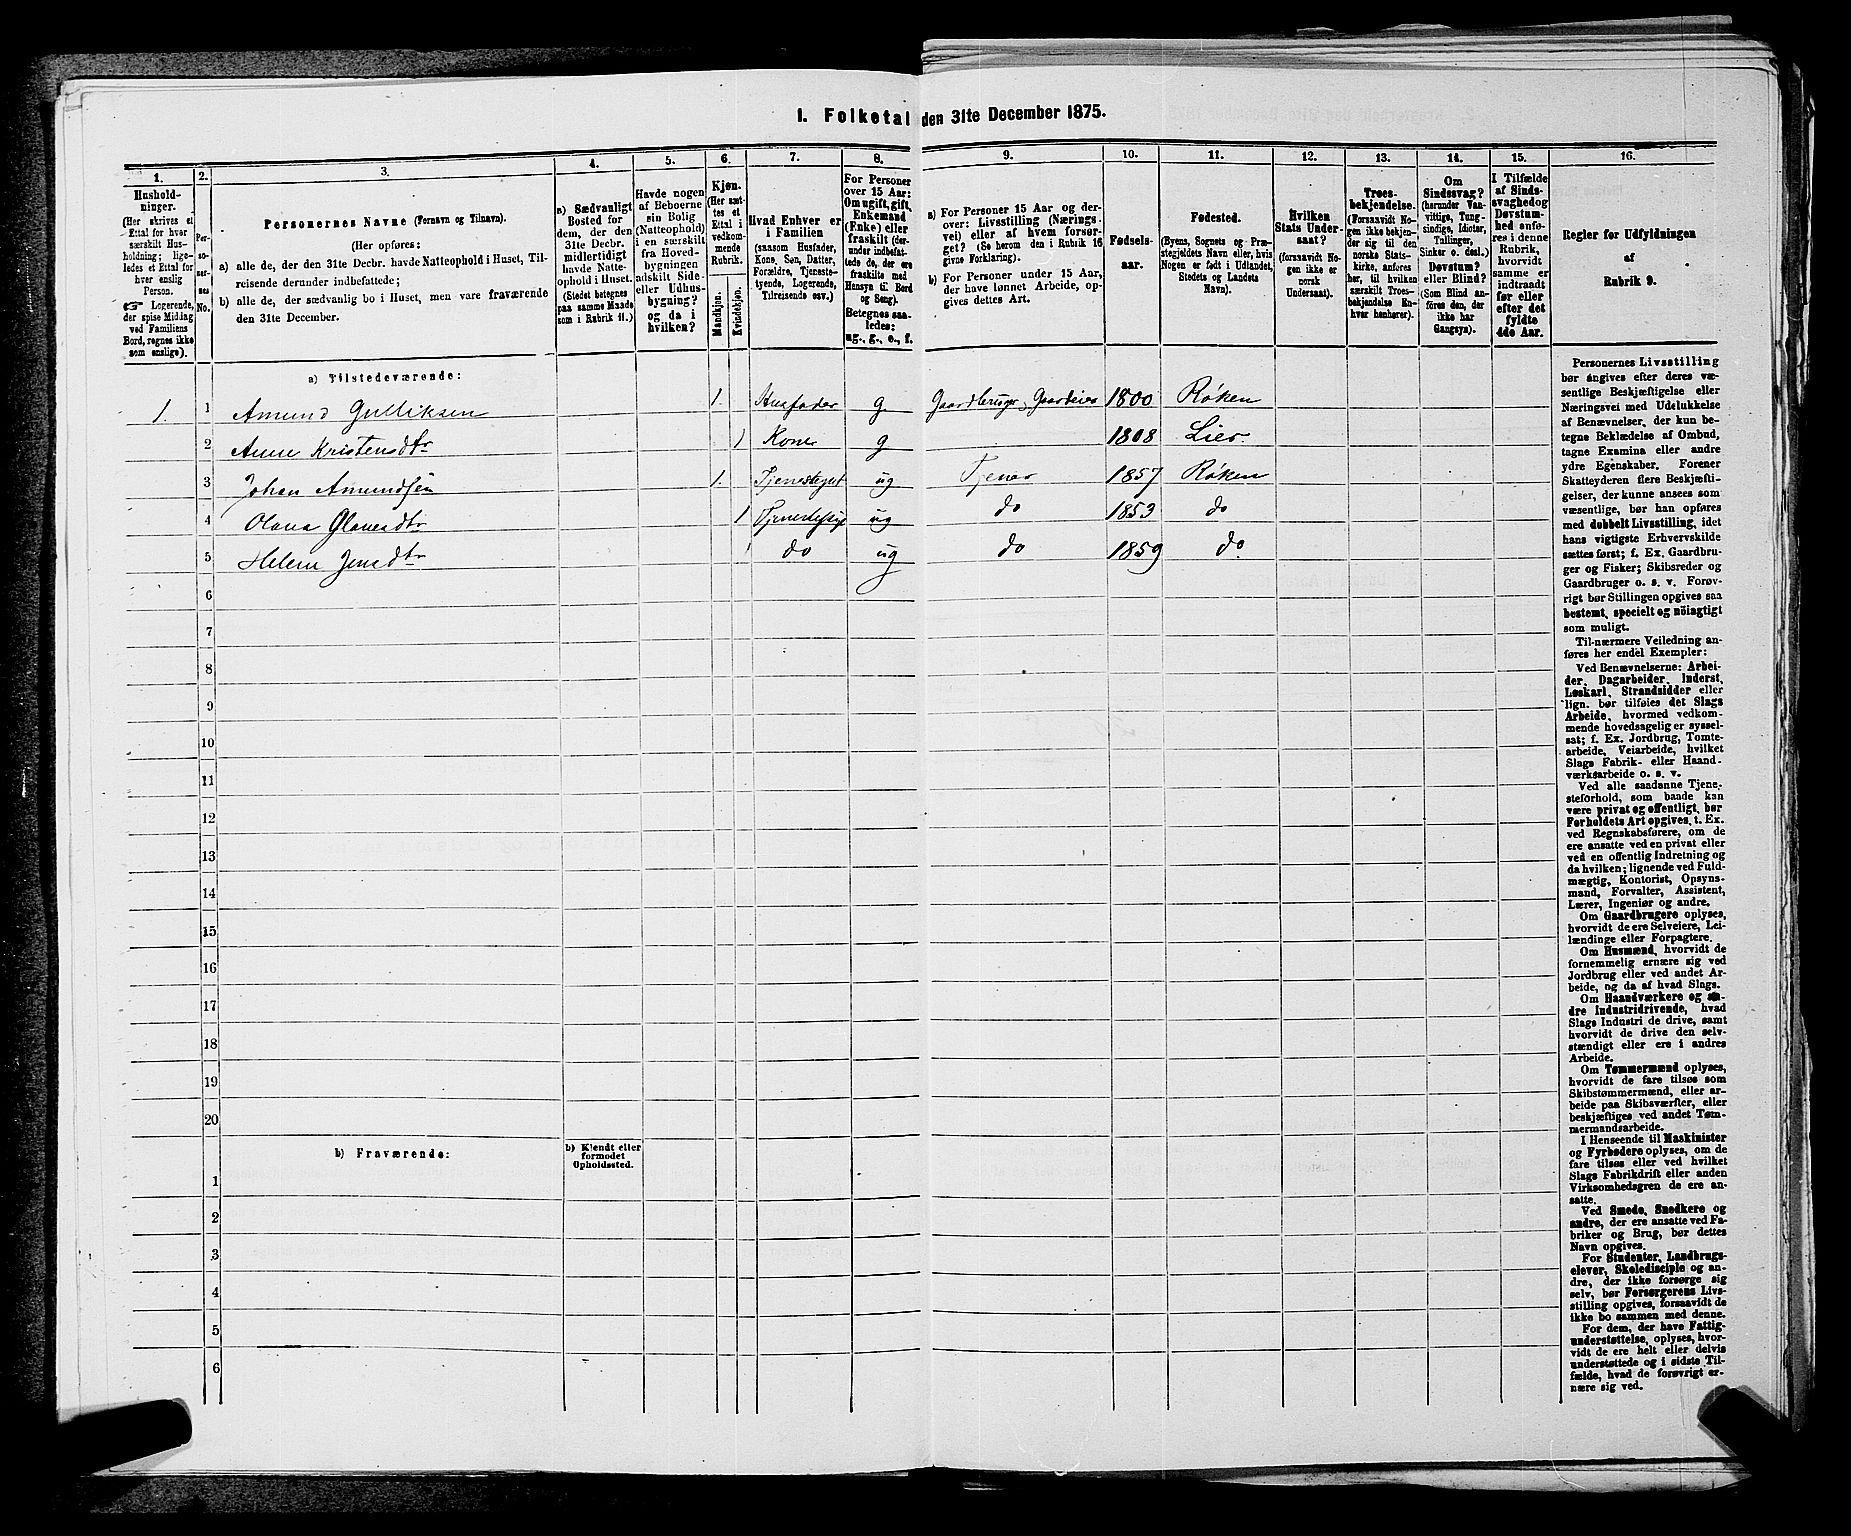 1. Folketal den 31te December 1875.
1. 2. 3. 4. 5. 6. 7. 8. 9. 10. 11. 12. 13. 14. 15. 16.
Hushold-
ninger.
(Her skrives et
Ettal for hver
særskilt Hus-
holdning; lige-
ledes et Ettal for
hver enslig
Person.
☞ Logerende,
der spise Middag
ved Familiens
Bord, regnes ikke
som enslige).
Per-
so-
ner-
nes
No.
Personernes Navne (Fornavn og Tilnavn).
(Her opføres:
a) alle de, der den 31te Decbr. havde Natteophold i Huset, Til-
reisende derunder indbefattede;
b) alle de, der sædvanlig bo i Huset, men vare fraværende
den 31te December.
a) Sædvanligt
Bosted for
dem, der den
31te Decbr.
midlertidigt
havde Natte-
ophold i Huset.
(Stedet betegnes
paa samme Maade
som i Rubrik 11.)
Havde nogen
af Beboerne
sin Bolig
(Natteophold)
i en særskilt
fra Hoved-
bygningen
adskilt Side-
eller Udhus-
bygning?
og da i
hvilken?
Kjøn.
(Her sæt-
tes et
Ettal i
vedkom-
mende
Rubrik.
Mandkjøn.
Kvindekjøn.
Hvad Enhver er
i Familien
(saasom Husfader,
Kone, Søn, Datter,
Forældre, Tjeneste-
tyende, Logerende,
Tilreisende osv.)
For Personer
over 15 Aar:
Om ugift, gift,
Enkemand
(Enke) eller
fraskilt (der-
under indbefat-
tede de, der ere
fraskilte med
Hensyn til Bord
og Seng).
Betegnes saa-
ledes:
ug., g., e., f.
a) For Personer 15 Aar og der-
over: Livsstilling (Nærings-
vei) eller af hvem forsør-
get? (Se herom den i Rubrik 16
givne Forklaring).
b) For Personer under 15 Aar,
der have lønnet Arbeide, op-
gives dettes Art.
Fødsels-
aar.
Fødested.
(Byens, Sognets og Præ-
stegjeldets Navn eller, hvis
Nogen er født i Udlandet,
Stedets og Landets
Navn).
Hvilken
Stats Under-
saat?
(forsaavidt No-
gen ikke er
norsk
Undersaat).
Troes-
bekjendelse.
(Forsaavidt No-
gen ikke bekjen-
der sig til den
norske Stats-
kirke, anføres
her, til hvilken
særskilt Troes-
bekjendelse En-
hver henhører).
Om
Sindssvag?
(herunder Van-
vittige, Tung-
sindige, Idioter,
Tullinger,
Sinker o. desl.)
Døvstum?
eller Blind?
(Som Blind an-
føres den, der
ikke har
Gangsyn).
I Tilfælde
af Sinds-
svaghed og
Døvstum-
hed anfø-
res i denne
Rubrik,
hvorvidt
samme er
indtraadt
før eller
efter det
fyldte
4de Aar.
Regler for Udfyldningen
af
Rubrik 9.
a) Tilstedeværende:
1. 1 Amund Gulliksen 1. Husfader g. Gaardbruger, Gaardeier 1800 Røken
2 Anne Kristensdtr 1 Kone g 1808 Lier
3 Johan Amundsen 1. Tjenestegut ug Tjener 1857 Røken
4 Olava Olavesdtr 1 ug do 1853 do
5 Helene Jensdtr 1 do ug do 1859 do.
6
7
8
9
10
11
12
13
14
15
16
17
18
19
20
b) Fraværende:
b) Kjendt eller
formodet
Opholdssted.
1
2
3
4
5
6
Personernes Livsstilling
bør angives efter deres væ-
sentlige Beskjæftigelse eller
Næringsvei med Udelukkelse
af Benævnelser, der kun be-
tegne Beklædelse af Ombud,
tagne Examina eller andre
ydre Egenskaber. Forener
Skatteyderen flere Beskjæfti-
gelser, der kunne ansees som
væsentlige, bør han opføres
med dobbelt Livsstilling, idet
hans vigtigste Erhvervskilde
sættes først; f. Ex. Gaardbru-
ger og Fisker; Skibsreder og
Gaardbruger o. s. v. Forøv-
rigt bør Stillingen opgives saa
bestemt, specielt og nöiagtigt
som muligt.
Til nærmere Veiledning an-
føres her endel Exempler:
Ved Benævnelserne: Arbei-
der, Dagarbeider, Inderst,
Løskarl, Strandsidder eller
lign. bør tilføies det Slags
Arbeide, hvormed vedkom-
mende hovedsagelig er syssel-
sat; f. Ex. Jordbrug, Tomte-
arbeide, Veiarbeide, hvilket
Slags Fabrik- eller Haand-
værksarbeide o. s. v.
Ved alle saadanne Tjene-
steforhold, som baade kan
være privat og offentligt, bør
Forholdets Art opgives, t. Ex.
ved Regnskabsførere, om de
ere ansatte ved en privat eller
ved en offentlig Indretning og
da hvilken; lignende ved Fuld-
mægtig, Kontorist, Opsyns-
mand, Forvalter, Assistent,
Lærer, Ingeniør og andre.
Om Gaardbrugere oplyses,
hvorvidt de ere Selveiere, Lei-
lændinge eller Forpagtere.
Om Husmænd, hvorvidt de
fornemmelig ernære sig ved
Jordbrug eller ved andet Ar-
beide, og da af hvad Slags.
Om Haandværkere og an-
dre Industridrivende, hvad
Slags Industri de drive, samt
hvorvidt de drive den selv-
stændigt eller ere i andres
Arbeide.
Om Tømmermænd oplyses,
hvorvidt de fare tilsøs som
Skibstømmermænd, eller ar-
beide paa Skibsværfter, eller
beskjæftiges ved andet Tøm-
mermandsarbeide.
I Henseende til Maskinister
og Fyrbødere oplyses, om de
fare tilsøs eller ved hvilket
Slags Fabrikdrift eller anden
Virksomhedsgren de ere an-
satte.
Ved Smede, Snedkere og
andre, der ere ansatte ved Fa-
briker og Brug, bør dettes
Navn opgives.
For Studenter, Landbrugs-
elever, Skoledisciple og an-
dre, der ikke forsørge sig
selv, bør Forsørgerens Livs-
stilling opgives, forsaavidt de
ikke bo sammen med denne.
For dem, der have Fattig-
understøttelse, oplyses, hvor-
vidt de ere helt eller delvis
understøttede og i sidste Til-
fælde, hvad de forøvrigt er-
nære sig ved.